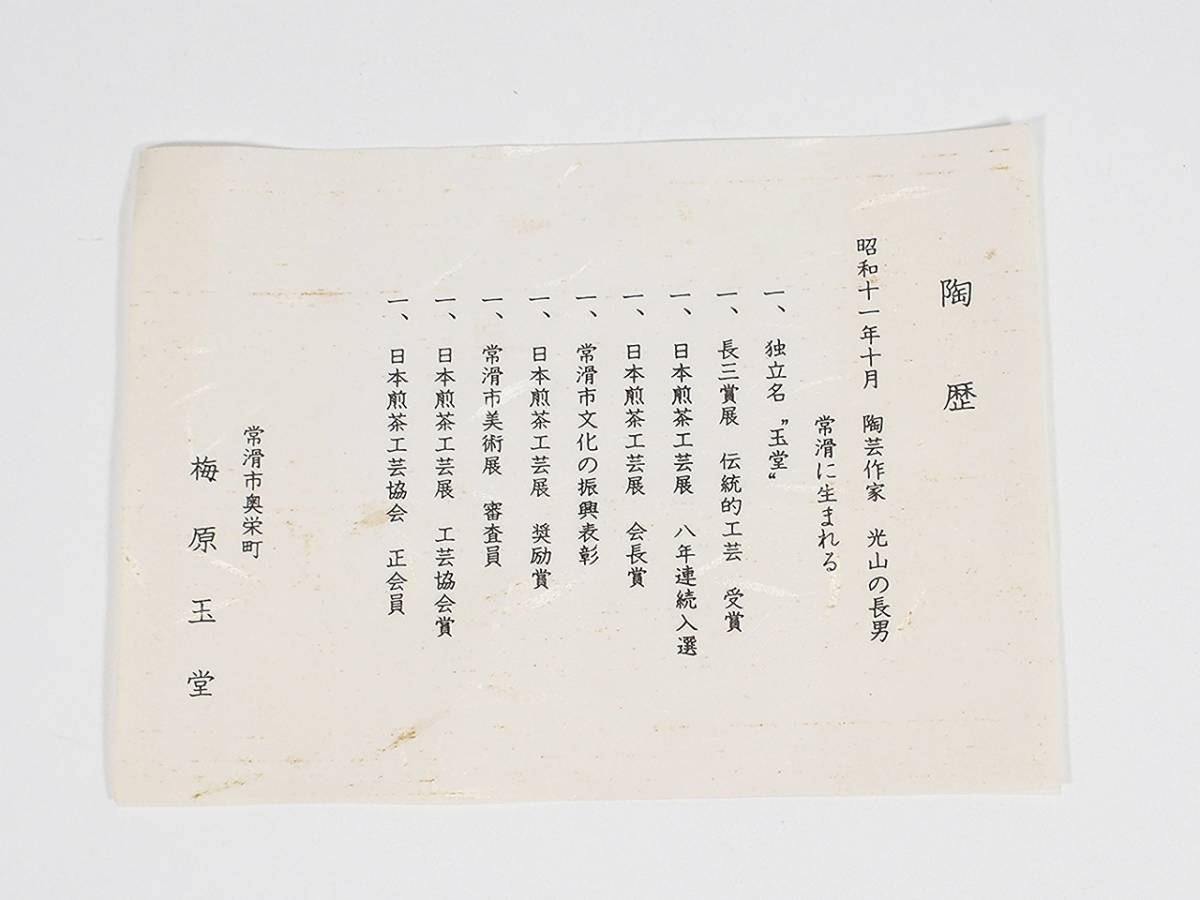 陶歴
昭和十一年十月　陶芸作家　光山の長男
常滑に生まれる
一、独立名〝玉堂〟
一、長三賞展　伝統的工芸　受賞
一、日本煎茶工芸展　八年連続入選
一、日本煎茶工芸展　会長賞
一、常滑市文化の振興表彰
一、日本煎茶工芸展　奨励賞
一、常滑市美術展　審査員
一、日本煎茶工芸展　工芸協会賞
一、日本煎茶工芸協会　正会員
常滑市奥栄町
梅原玉堂